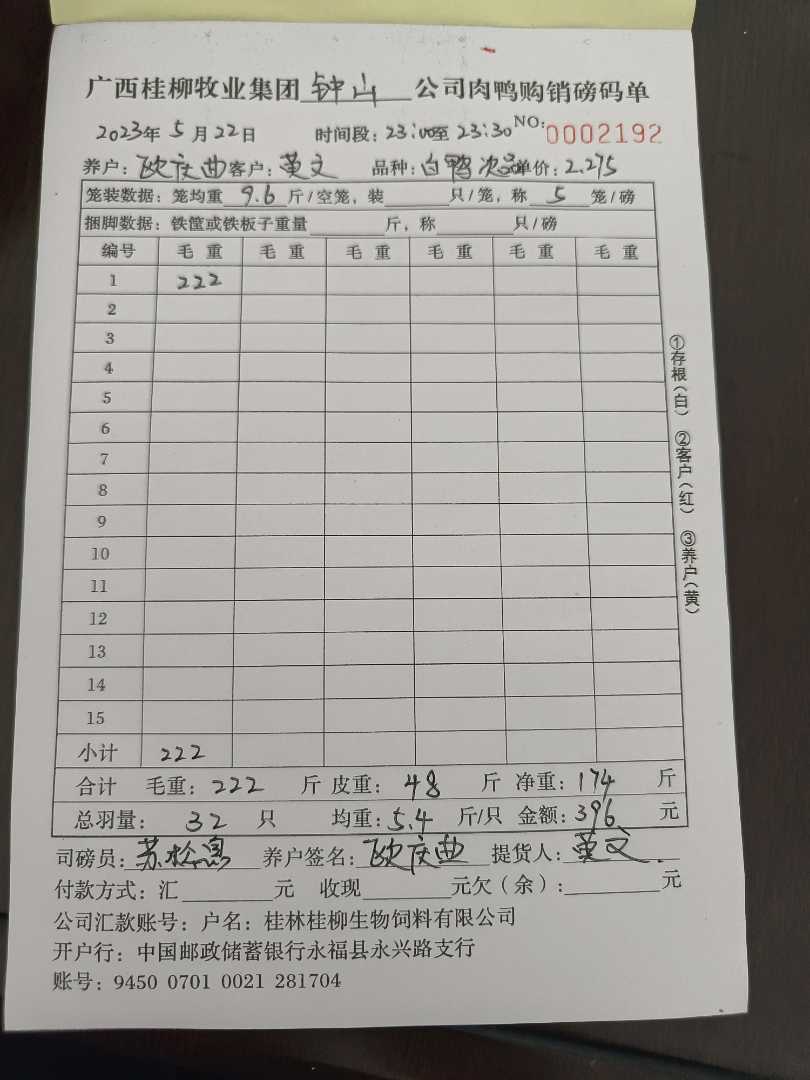 广西桂柳牧业集团 钟山 公司肉鸭购销磅码单
2023年 5月 22日 时间段: 23:00至 23:30 NO: 0002192
养户: 欧庆曲 客户: 黄文 品种: 白鸭次品 单价: 2.275
笼装数据: 笼均重 9.6 斤/空笼, 装 只/笼, 称 5 笼/磅
捆脚数据: 铁筐或铁板子重量 斤, 称 只/磅
编号 毛重 毛重 毛重 毛重 毛重 毛重
1 222
2
3
4
5
6
7
8
9
10
11
12
13
14
15
小计 222
合计 毛重: 222 斤 皮重: 48 斤 净重: 174 斤
总羽量: 32 只 均重: 5.4 斤/只 金额: 396 元
司磅员: 苏松 养户签名: 欧庆曲 提货人: 黄文
付款方式: 汇 元 收现 元欠(余): 元
公司汇款账号: 户名: 桂林桂柳生物饲料有限公司
开户行: 中国邮政储蓄银行永福县永兴路支行
账号: 9450 0701 0021 281704
①存根(白) ②客户(红) ③养户(黄)